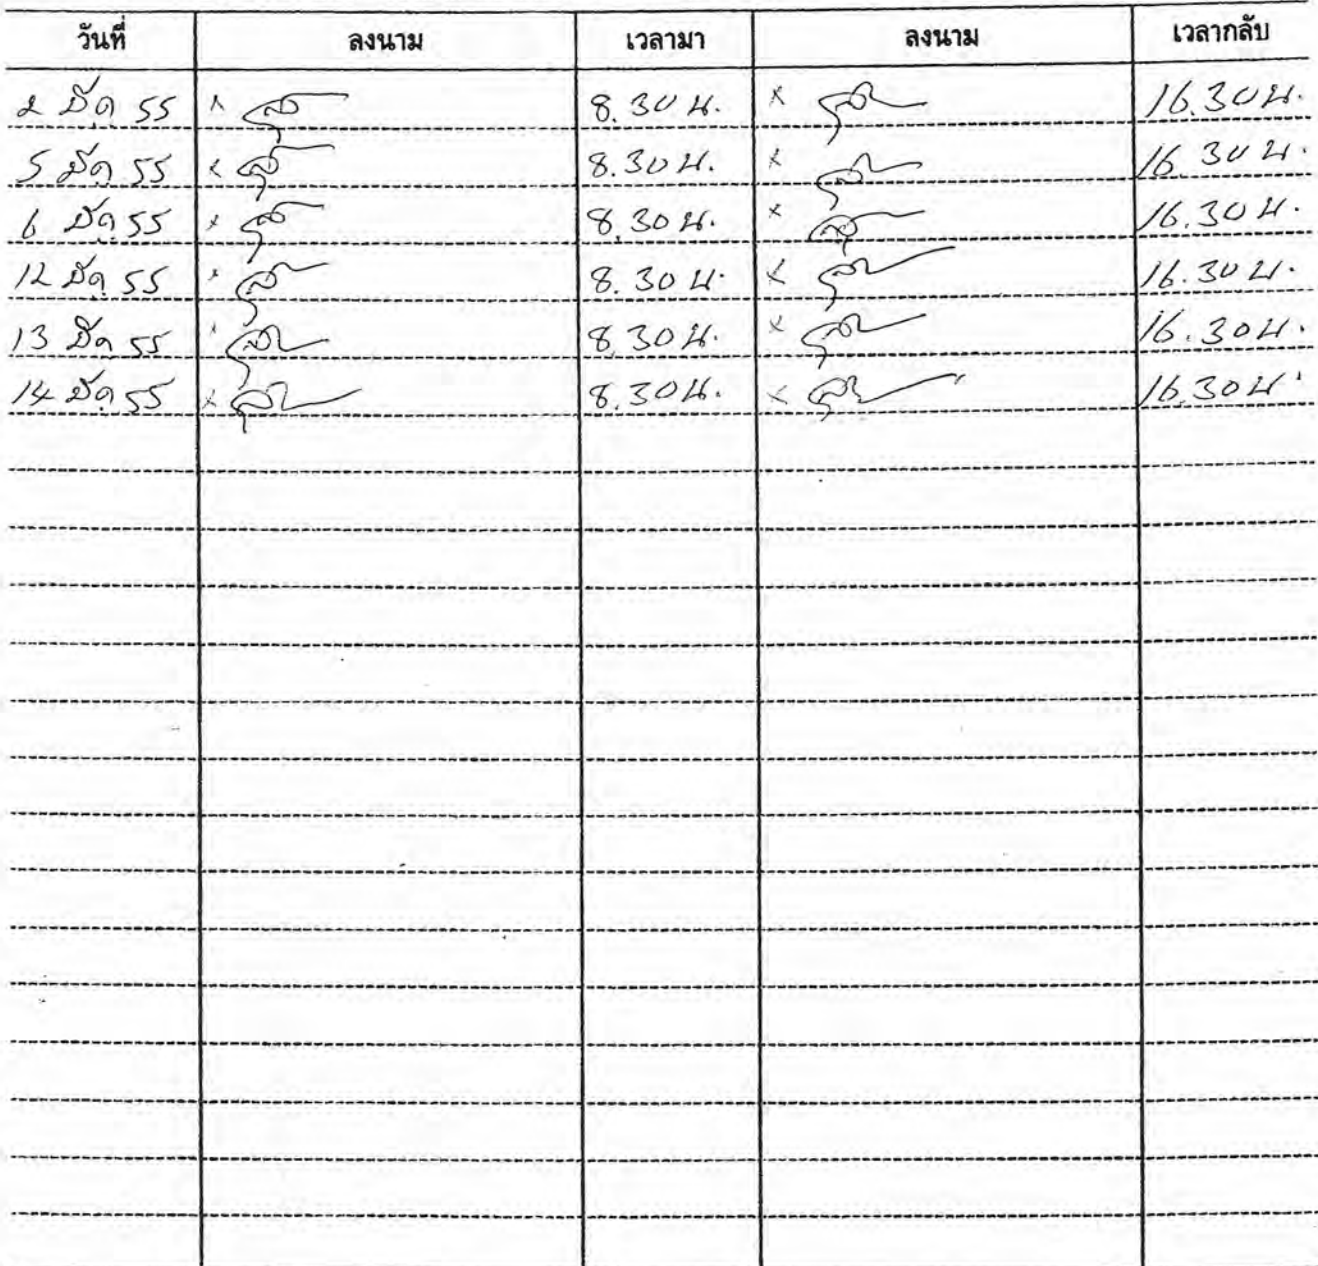 วันที่ ลงนาม เวลามา ลงนาม เวลากลับ
2 มีค 55 × 8.30 น. × 16.30 น.
5 มีค 55 × 8.30 น. × 16.30 น.
6 มีค 55 × 8.30 น. × 16.30 น.
12 มีค 55 × 8.30 น. × 16.30 น.
13 มีค 55 × 8.30 น. × 16.30 น.
14 มีค 55 × 8.30 น. × 16.30 น.